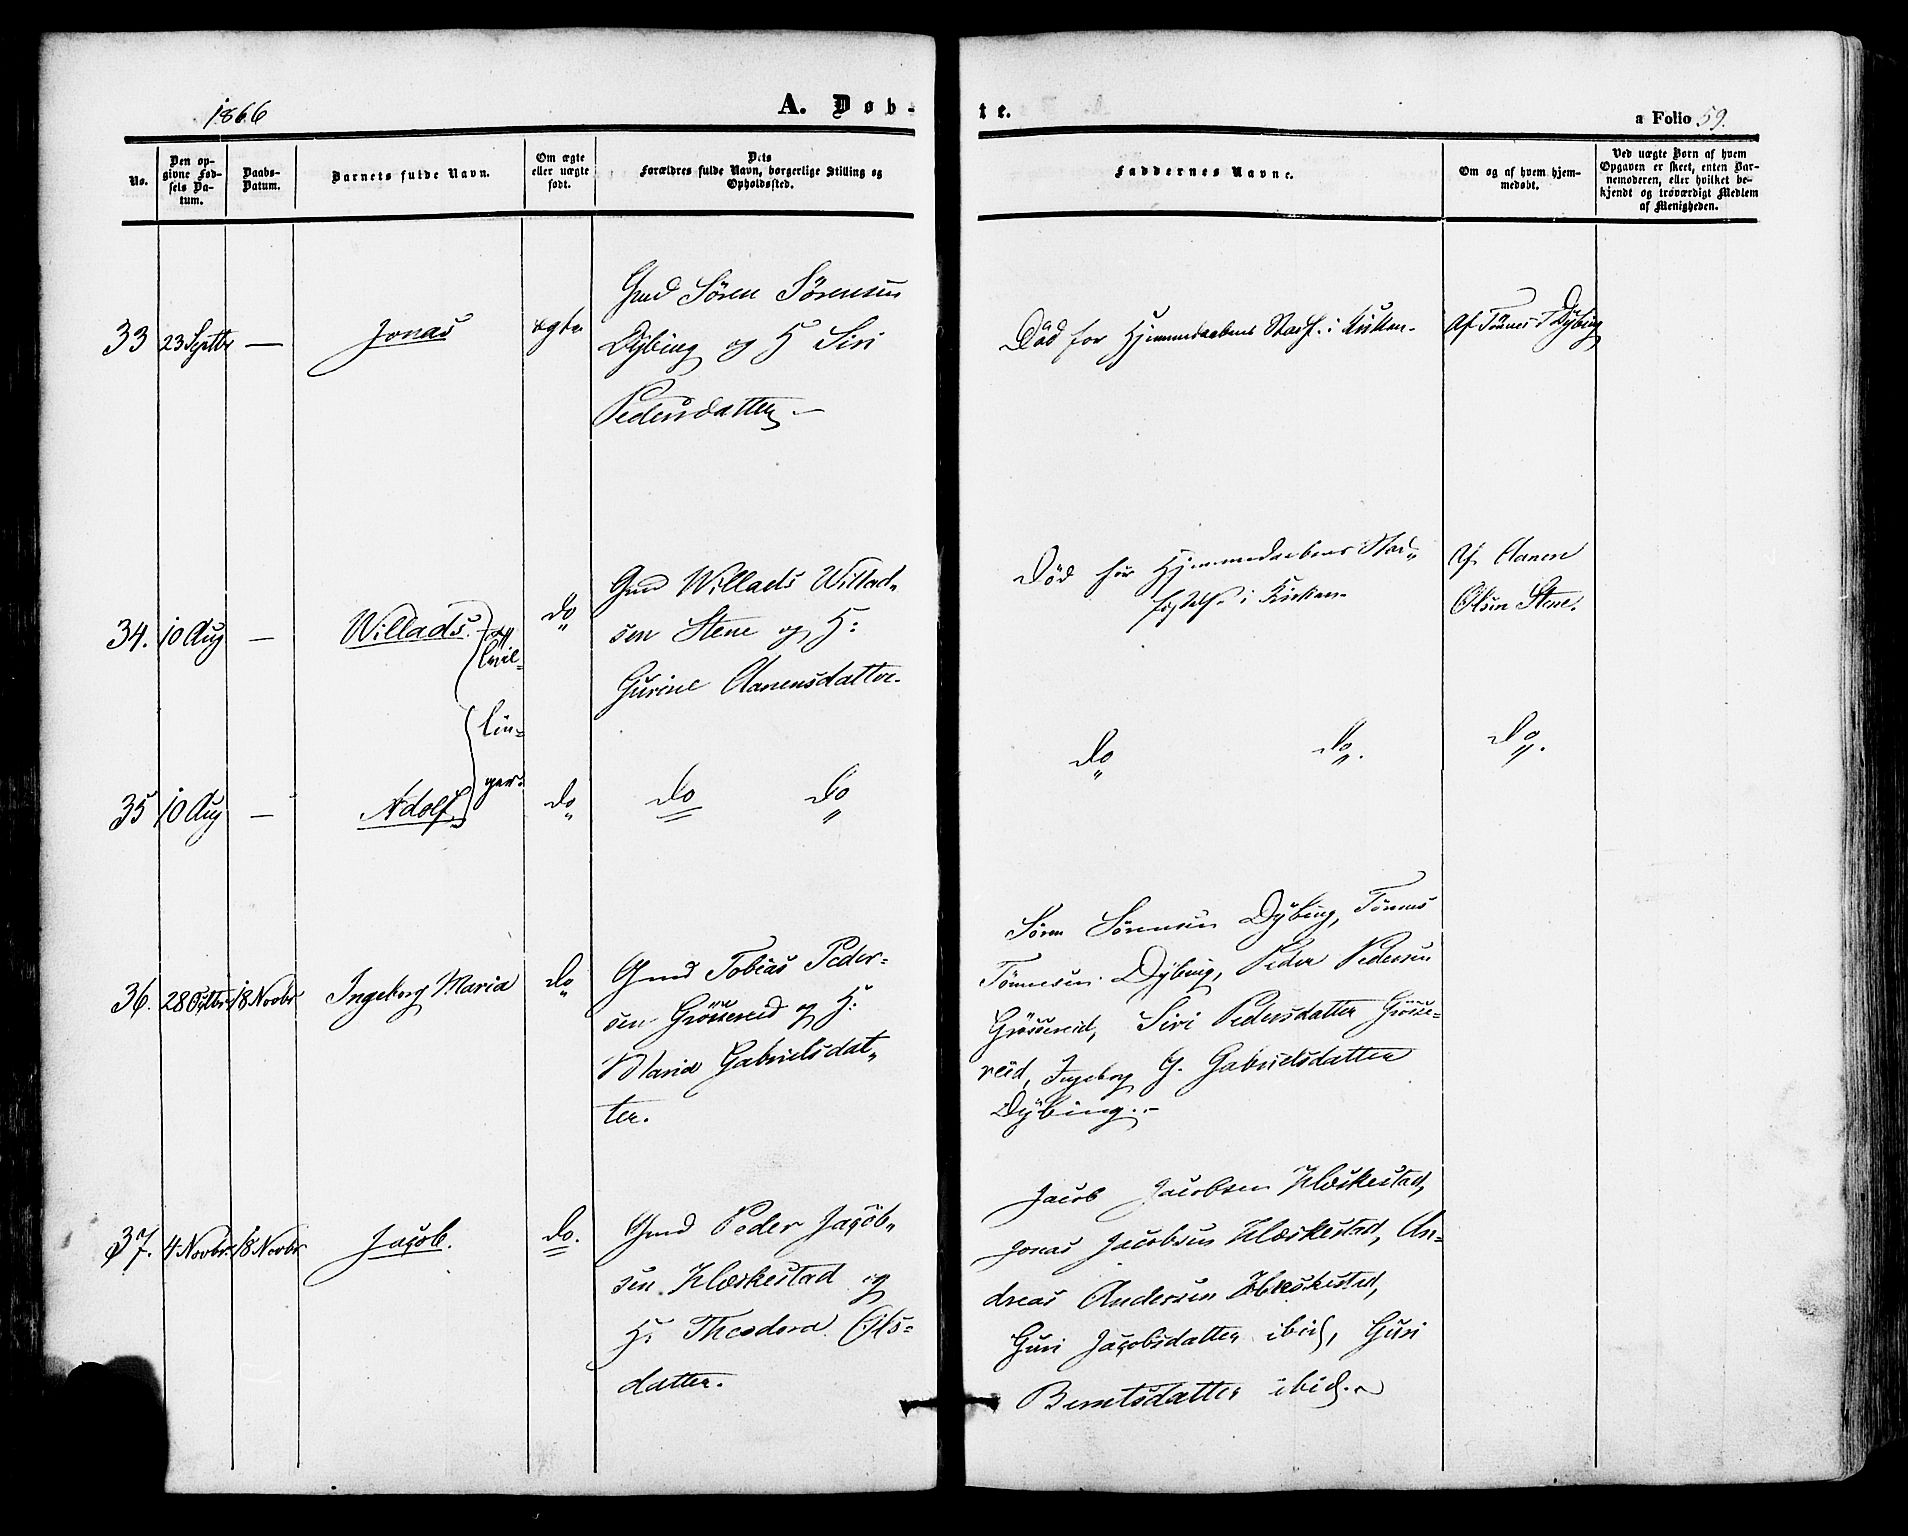 1866
A. Døb-
te.
a Folio 59.
No.
Den op-
givne Fød-
sels Da-
tum.
Daabs-
Datum.
Barnets fulde Navn.
Om ægte
eller uægte
født.
Dets
Forældres fulde Navn, borgerlige Stilling og
Opholdssted.
Faddernes Navne.
Om og af hvem hjem-
medøbt.
Ved uægte Børn af hvem
Opgaven er skeet, enten Bar-
nemoderen, eller hvilket be-
kjendt og troværdigt Medlem
af Menigheden.
33 23 Septbr — Jonas ægte
Gmd Sören Sörensen
Dÿbing og H Siri
Pedersdatter. —
Död for Hjemmedaabens Stadf. i Kirken.
Af Tönnes T Dÿbing
34. 10 Aug — Willads. do
Tvil-
lin-
ger.
Gmd Willads Willad-
sen Stene og H:
Gurine Aanensdatter.
Död för Hjemmedaabens Stad-
fæstelse i Kirken.
Af Aanen
Olsen Stene.
35 10 Aug — Adolf. do do do
do do. do.
36. 28 Octbr 18 Novbr Ingeborg Maria do
Gmd Tobias Peder-
sen Grössereid og H:
Maria Gabrielsdat-
ter.
Sören Sörensen Dÿbing, Tönnes
Tönnesen Dÿbing, Peder Pedersen
Grössereid, Siri Pedersdatter Grösse-
reid, Ingeborg G. Gabrielsdatter
Dÿbing. —
37. 4 Novbr 18 Novbr Jacob. do.
Gmd Peder Jacob-
sen Klæskestad og
H. Theodora Ols-
datter.
Jacob Jacobsen Klæskestad,
Jonas Jacobsen Klæskestad, An-
dreas Andersen Klæskestad,
Guri Jacobsdatter ibid, Guri
Berntsdatter ibid. —